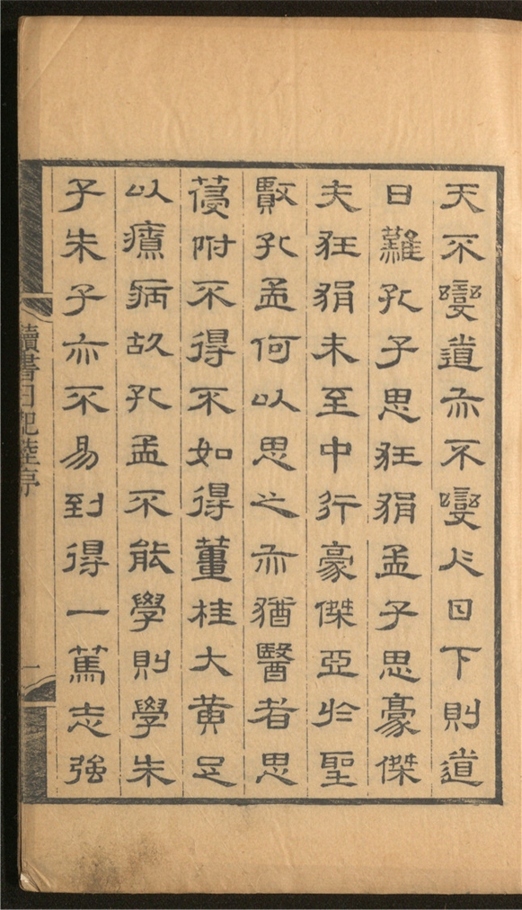 天不變道亦不變人日下則道
日難孔子思狂狷孟子思豪傑
夫狂狷未至中行豪傑亞於聖
賢孔孟何以思之亦猶醫者思
葠附不得不如得董桂大黃足
以瘳病故孔孟不能學則學朱
子朱子亦不易到得一篤志強
讀書日記陸序
一